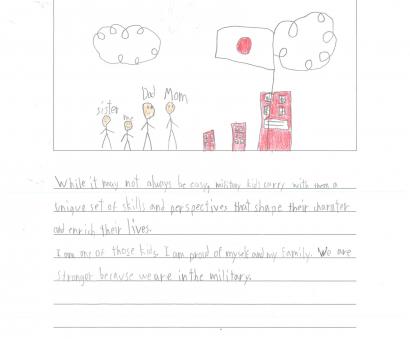 sister
me
Dad Mom
While it may not always be easy, military kids carry with them a
unique set of skills and perspectives that shape their charater
and enrich their lives.
I am one of those kids. I am proud of myself and my family. We are
stronger because we are in the military.